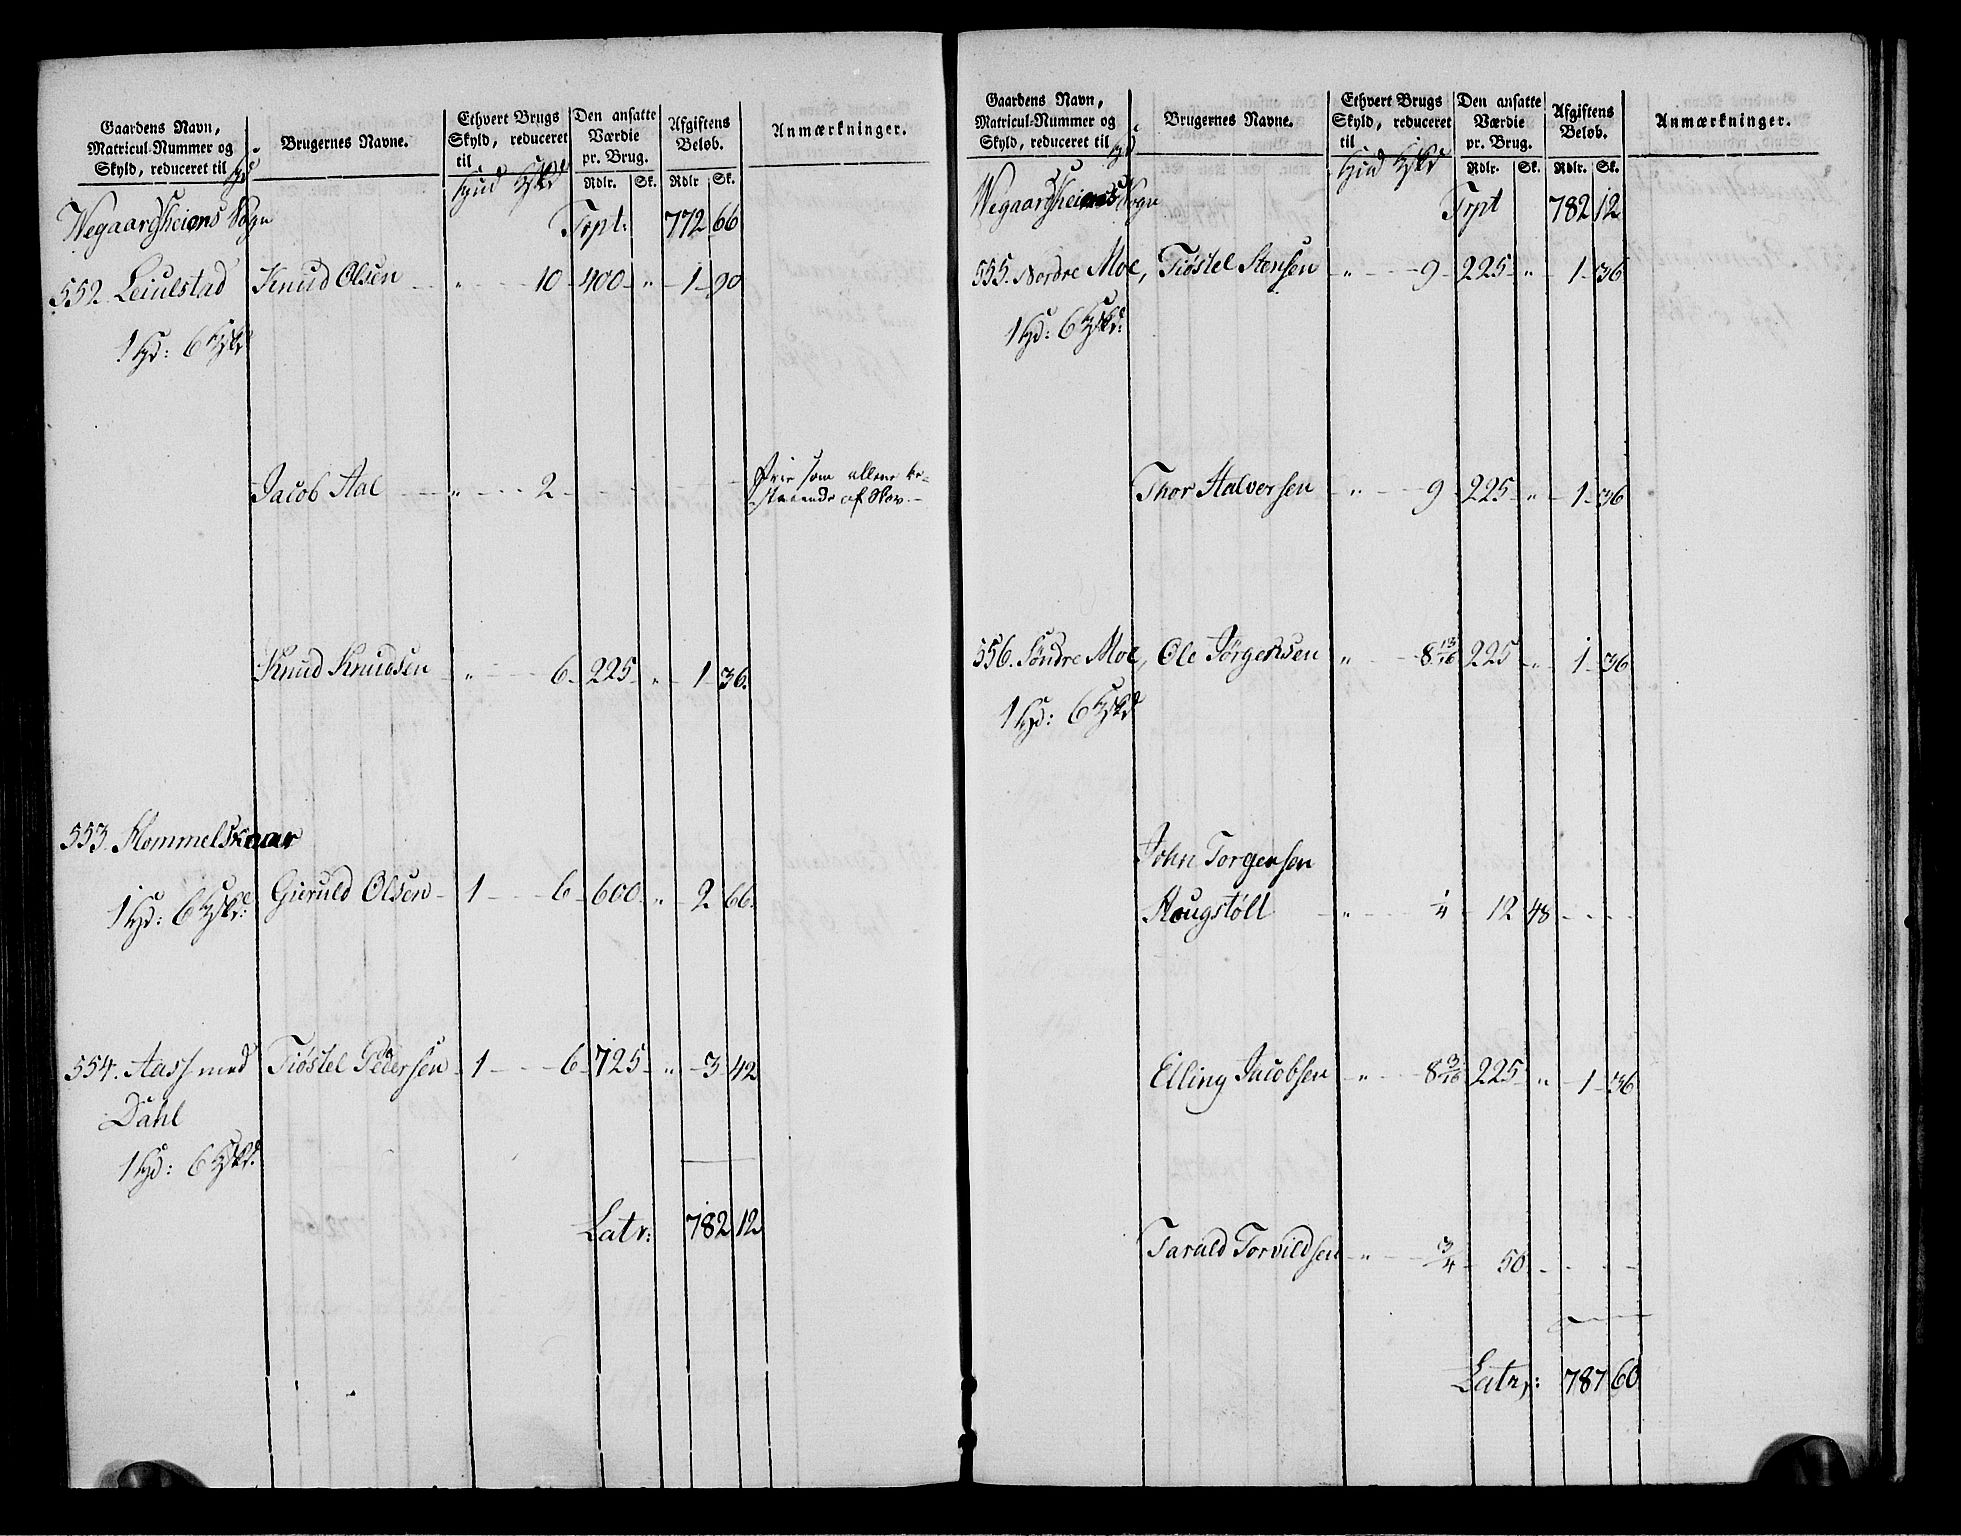 Gaardens Navn,
Matricul-Nummer og
Skyld, reduceret til
Brugernes Navne.
Ethvert Brugs
Skyld, reduceret
til
Den ansatte
Værdie
pr. Brug.
Rdlr. Sk.
Afgiftens
Beløb.
Rdlr Sk.
Anmærkninger.
Wegaardsheiens Sogn Trpt: 772 66
552. Leiulstad Knud Olsen " 10 400 " 1 90
1 Hd: 6
Jacob Aal " 2 som allene be-
staaende af Skov
Knud Knudsen " 6 225 " 1 36.
553. Kommelskaar
1 Hd: 6 Gieruld Olsen 1 6 600 " 2 66.
554. Aass med Tiøstel Pedersen 1 6 725 " 3 42
Dahl
1 Hd: 6
Latr: 782 12
Gaardens Navn,
Matricul-Nummer og
Skyld, reduceret til
Brugernes Navne.
Ethvert Brugs
Skyld, reduceret
til
Den ansatte
Værdie
pr. Brug.
Rdlr. Sk.
Afgiftens
Beløb.
Rdlr. Sk.
Anmærkninger.
Wegaardsheiens Sogn Trpt 782 12
555. Nordre Moe, Tiøstel Stensen " 9 225 " 1 36
1 Hd: 6
Thor Halversen " 9 225 " 1 36
556. Søndre Moe, Ole Jörgensen " 8 13/16 225 " 1 36
1 Hd: 6
John Torgersen
Hougstöll " 1/4 12 48
Elling Jacobsen " 8 3/16 225 " 1 36
Tarald Torvildsen " 3/4 50
Latr: 787 60